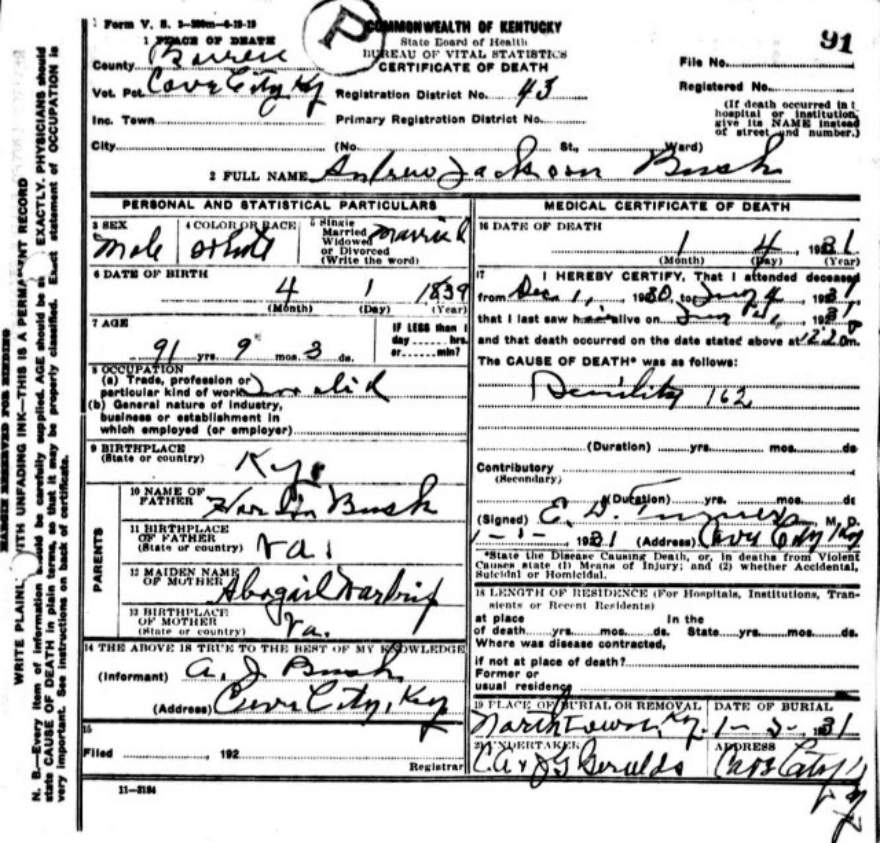 Form V. S. 2-200m-6-19-19
P
COMMONWEALTH OF KENTUCKY
State Board of Health
BUREAU OF VITAL STATISTICS
CERTIFICATE OF DEATH
91
1 PLACE OF DEATH
County Barren
Vot. Pct. Cave City Ky
Inc. Town
City
Registration District No. 43
Primary Registration District No.
(No. St., Ward)
File No.
Registered No.
(If death occurred in
hospital or institution,
give its NAME instead
of street and number.)
2 FULL NAME Andrew Jackson Bush
PERSONAL AND STATISTICAL PARTICULARS
3 SEX
Male
4 COLOR OR RACE
White
5 Single
Married
Widowed
or Divorced
(Write the word)
Married
6 DATE OF BIRTH
4 1 1839
(Month) (Day) (Year)
7 AGE
91 yrs. 9 mos. 3 ds.
IF LESS than 1
day hrs.
or min?
8 OCCUPATION
(a) Trade, profession or
particular kind of work Invalid
(b) General nature of industry,
business or establishment in
which employed (or employer)
9 BIRTHPLACE
(State or country)
Ky.
PARENTS
10 NAME OF
FATHER Bush
11 BIRTHPLACE
OF FATHER
(State or country) Va.
12 MAIDEN NAME
OF MOTHER Abagail
13 BIRTHPLACE
OF MOTHER
(State or country) Va.
14 THE ABOVE IS TRUE TO THE BEST OF MY KNOWLEDGE
(Informant) A. J. Bush
(Address) Cave City, Ky
15
Filed , 192
Registrar
11-3184
MEDICAL CERTIFICATE OF DEATH
16 DATE OF DEATH
1 4 1931
(Month) (Day) (Year)
17 I HEREBY CERTIFY, That I attended deceased
from Dec. 1, 1930, to Jany 4, 1931
that I last saw him alive on , 1931
and that death occurred on the date stated above at m.
The CAUSE OF DEATH* was as follows:
Senility 162
(Duration) yrs. mos. ds
Contributory
(Secondary)
(Duration) yrs. mos. ds
(Signed) E. D. Turner, M. D.
1-1-, 1931 (Address) Cave City Ky
*State the Disease Causing Death, or, in deaths from Violent
Causes state (1) Means of Injury; and (2) whether Accidental,
Suicidal or Homicidal.
18 LENGTH OF RESIDENCE (For Hospitals, Institutions, Tran-
sients or Recent Residents)
at place In the
of death yrs. mos. ds. State yrs. mos. ds.
Where was disease contracted,
if not at place of death?
Former or
usual residence
19 PLACE OF BURIAL OR REMOVAL
Northtown, Ky.
DATE OF BURIAL
1-5-1931
20 UNDERTAKER
Geralds
ADDRESS
Cave City Ky
MARGIN RESERVED FOR BINDING
WRITE PLAINLY WITH UNFADING INK—THIS IS A PERMANENT RECORD
N. B.—Every item of information should be carefully supplied. AGE should be EXACTLY. PHYSICIANS should
state CAUSE OF DEATH in plain terms, so that it may be properly classified. Exact statement of OCCUPATION is
very important. See instructions on back of certificate.